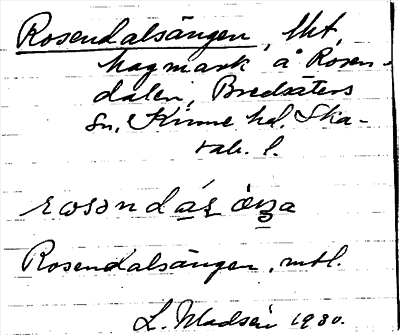 Rosendalsängen, Äkt,
hagmark å Rosen-
dalen, Bredsäters
sn, Kinne hd. Ska-
rab. l.
Rosendalsängen, mtl.
L. Madsén 1930.